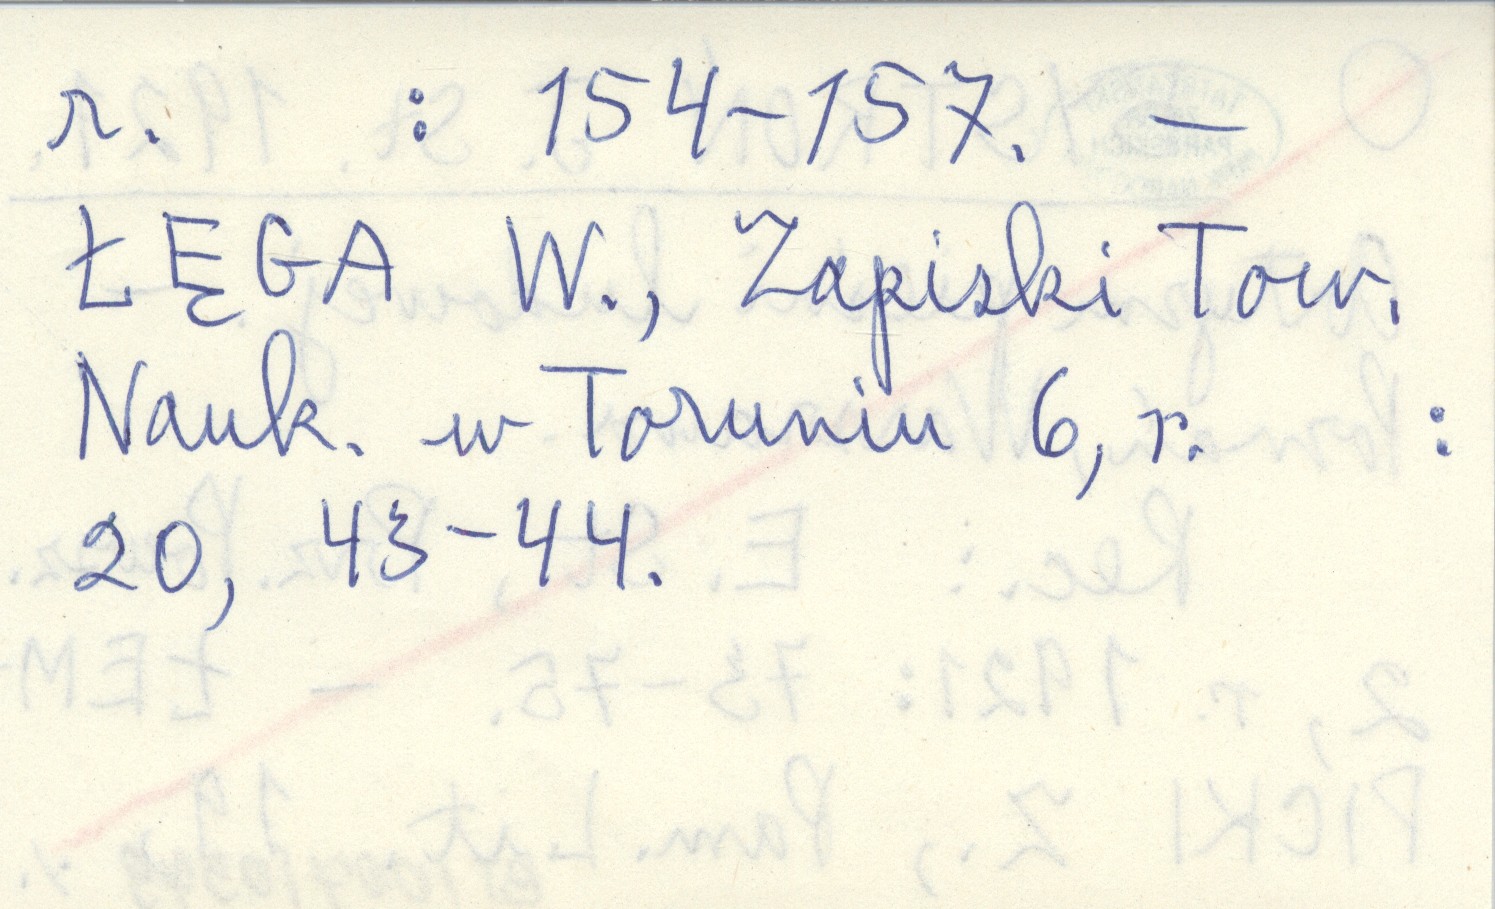 r. : 154-157. —
ŁĘGA W., Zapiski Tow.
Nauk. w Toruniu 6, r. :
20, 43-44.